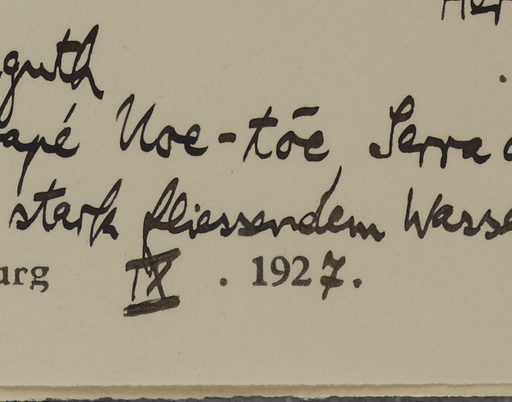 Her
guth
apé Uoe-tōe, Serra d
stark fliessendem Wasse
urg IX . 1927.